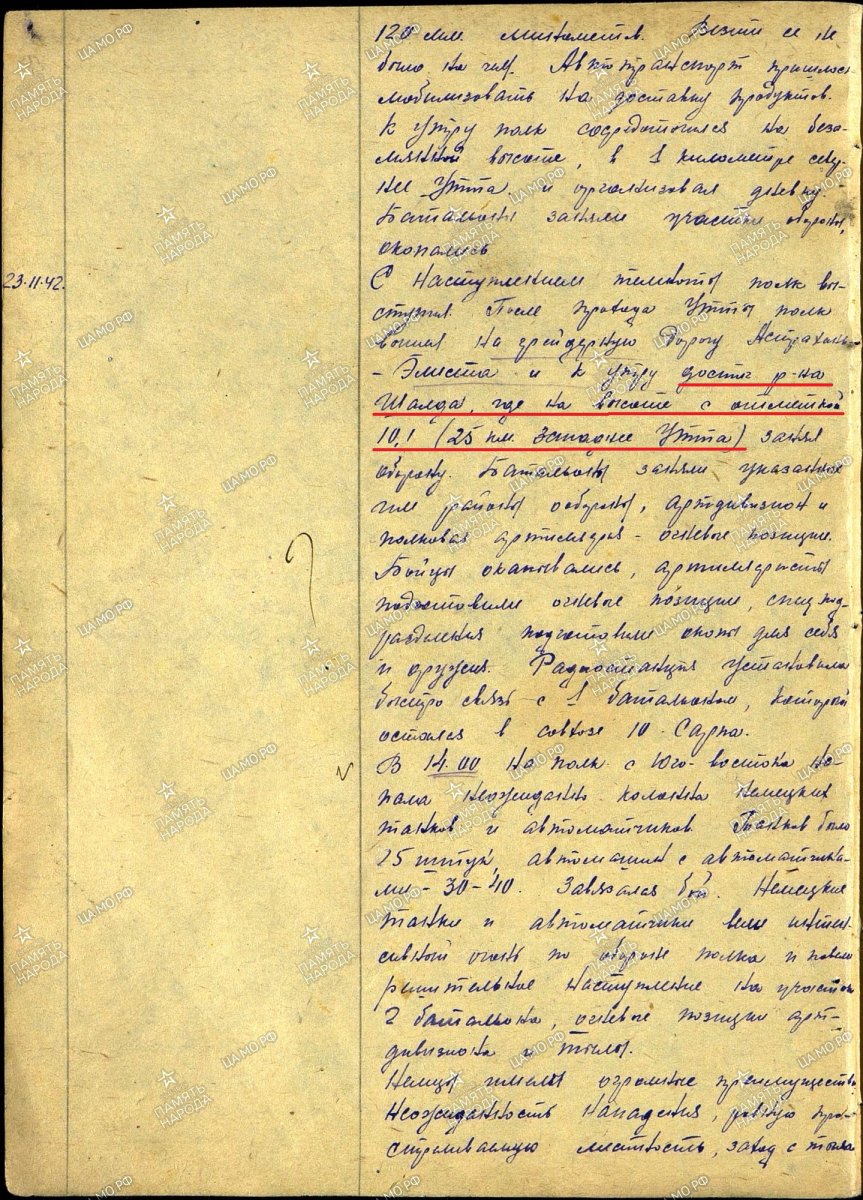 120 мм минометов. Везти ее не
было на чем. Автотранспорт пришлось
мобилизовать на доставку продуктов.
К утру полк сосредоточился на безы-
мянной высоте, в 1 километре севе-
нее Утта и организовал дневку.
Батальоны заняли участки обороны,
окопались
23.11.42. С наступлением темноты полк вы-
ступил. После прохода Утты полк
вышел на грейдерную дорогу Астрахань-
- Элиста и к утру достиг р-на
Шалда, где на высоте с отметкой
10,1 (25 км. западнее Утта) занял
оборону. Батальоны заняли указанные
им районы обороны, артдивизион и
полковая артиллерия - огневые позиции.
Бойцы окапывались, артиллеристы
подготовили огневые позиции, спец под-
разделения подготовили окопы для себя
и оружия. Радиостанция установила
быстро связь с 1 батальоном, который
остался в совхозе 10 - Сарпа.
В 14.00 на полк с юго-востока на-
пала неожиданно колонна немецких
танков и автоматчиков. Танков было
25 штук, автомашин с автоматчика-
ми - 30-40. Завязался бой. Немецкие
танки и автоматчики вели интен-
сивный огонь по обороне полка и повели
решительное наступление на участок
2 батальона, огневые позиции арт-
дивизиона и тылы.
Немцы имели огромные преимущества
Неожиданность нападения, ровную про-
стреливаемую местность, заход с тыла
ПАМЯТЬ НАРОДА
ЦАМО.РФ